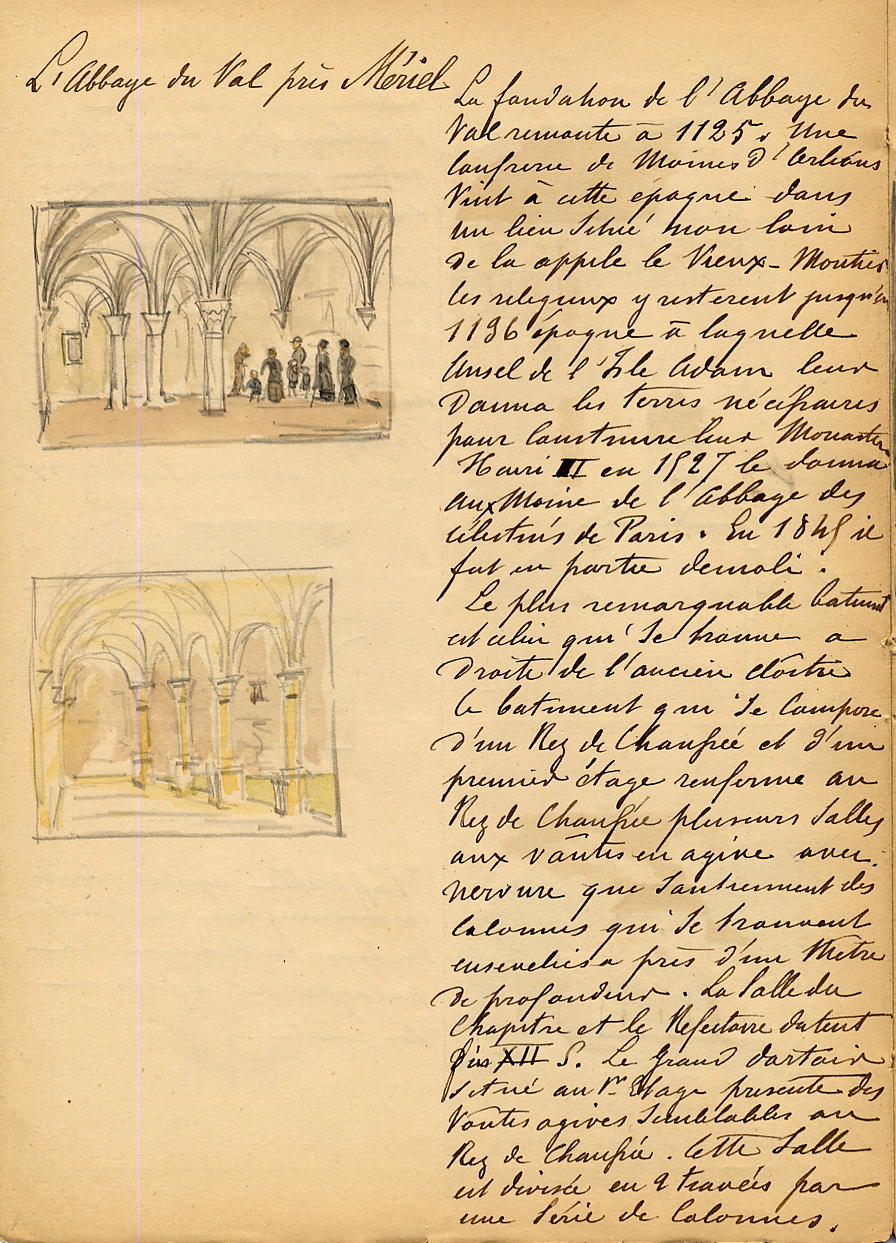 L'Abbaye du Val près Mériel
La fondation de l'Abbaye du
Val remonte à 1125. Une
Confrerie de Moines d'Orléans
Vint à cette epoque dans
un lieu Situé non loin
de la appelé le Vieux-Moutier
les religieux y resterent jusqu'en
1136 époque à laquelle
Ansel de l'Isle Adam leur
Donna les terres nécessaires
pour Construire leur Monastere
Henri III en 1527 le donna
aux Moine de l'Abbage des
célestins de Paris. En 1845 il
fut en partie demoli.
Le plus remarquable batiment
est celui qui Se trouve a
Droite de l'ancien cloître
Ce batiment qui Se Compose
d'un Rez de Chaussée et d'un
premier étage renferme au
Rez de Chaussée plusieurs Salles
aux voûtes en ogive avec
nervure que Soutiennent des
Colonnes qui Se trouvent
ensevelies a près d'un Mètre
de profondeur. La Salle du
Chapitre et le Réfectoire datent
XII S. Le Grand dortoir
Situé au 1er Etage presente des
Voutes ogives Semblables au
Rez de Chaussée. Cette Salle
est divisée en 2 travées par
une Série de Colonnes.